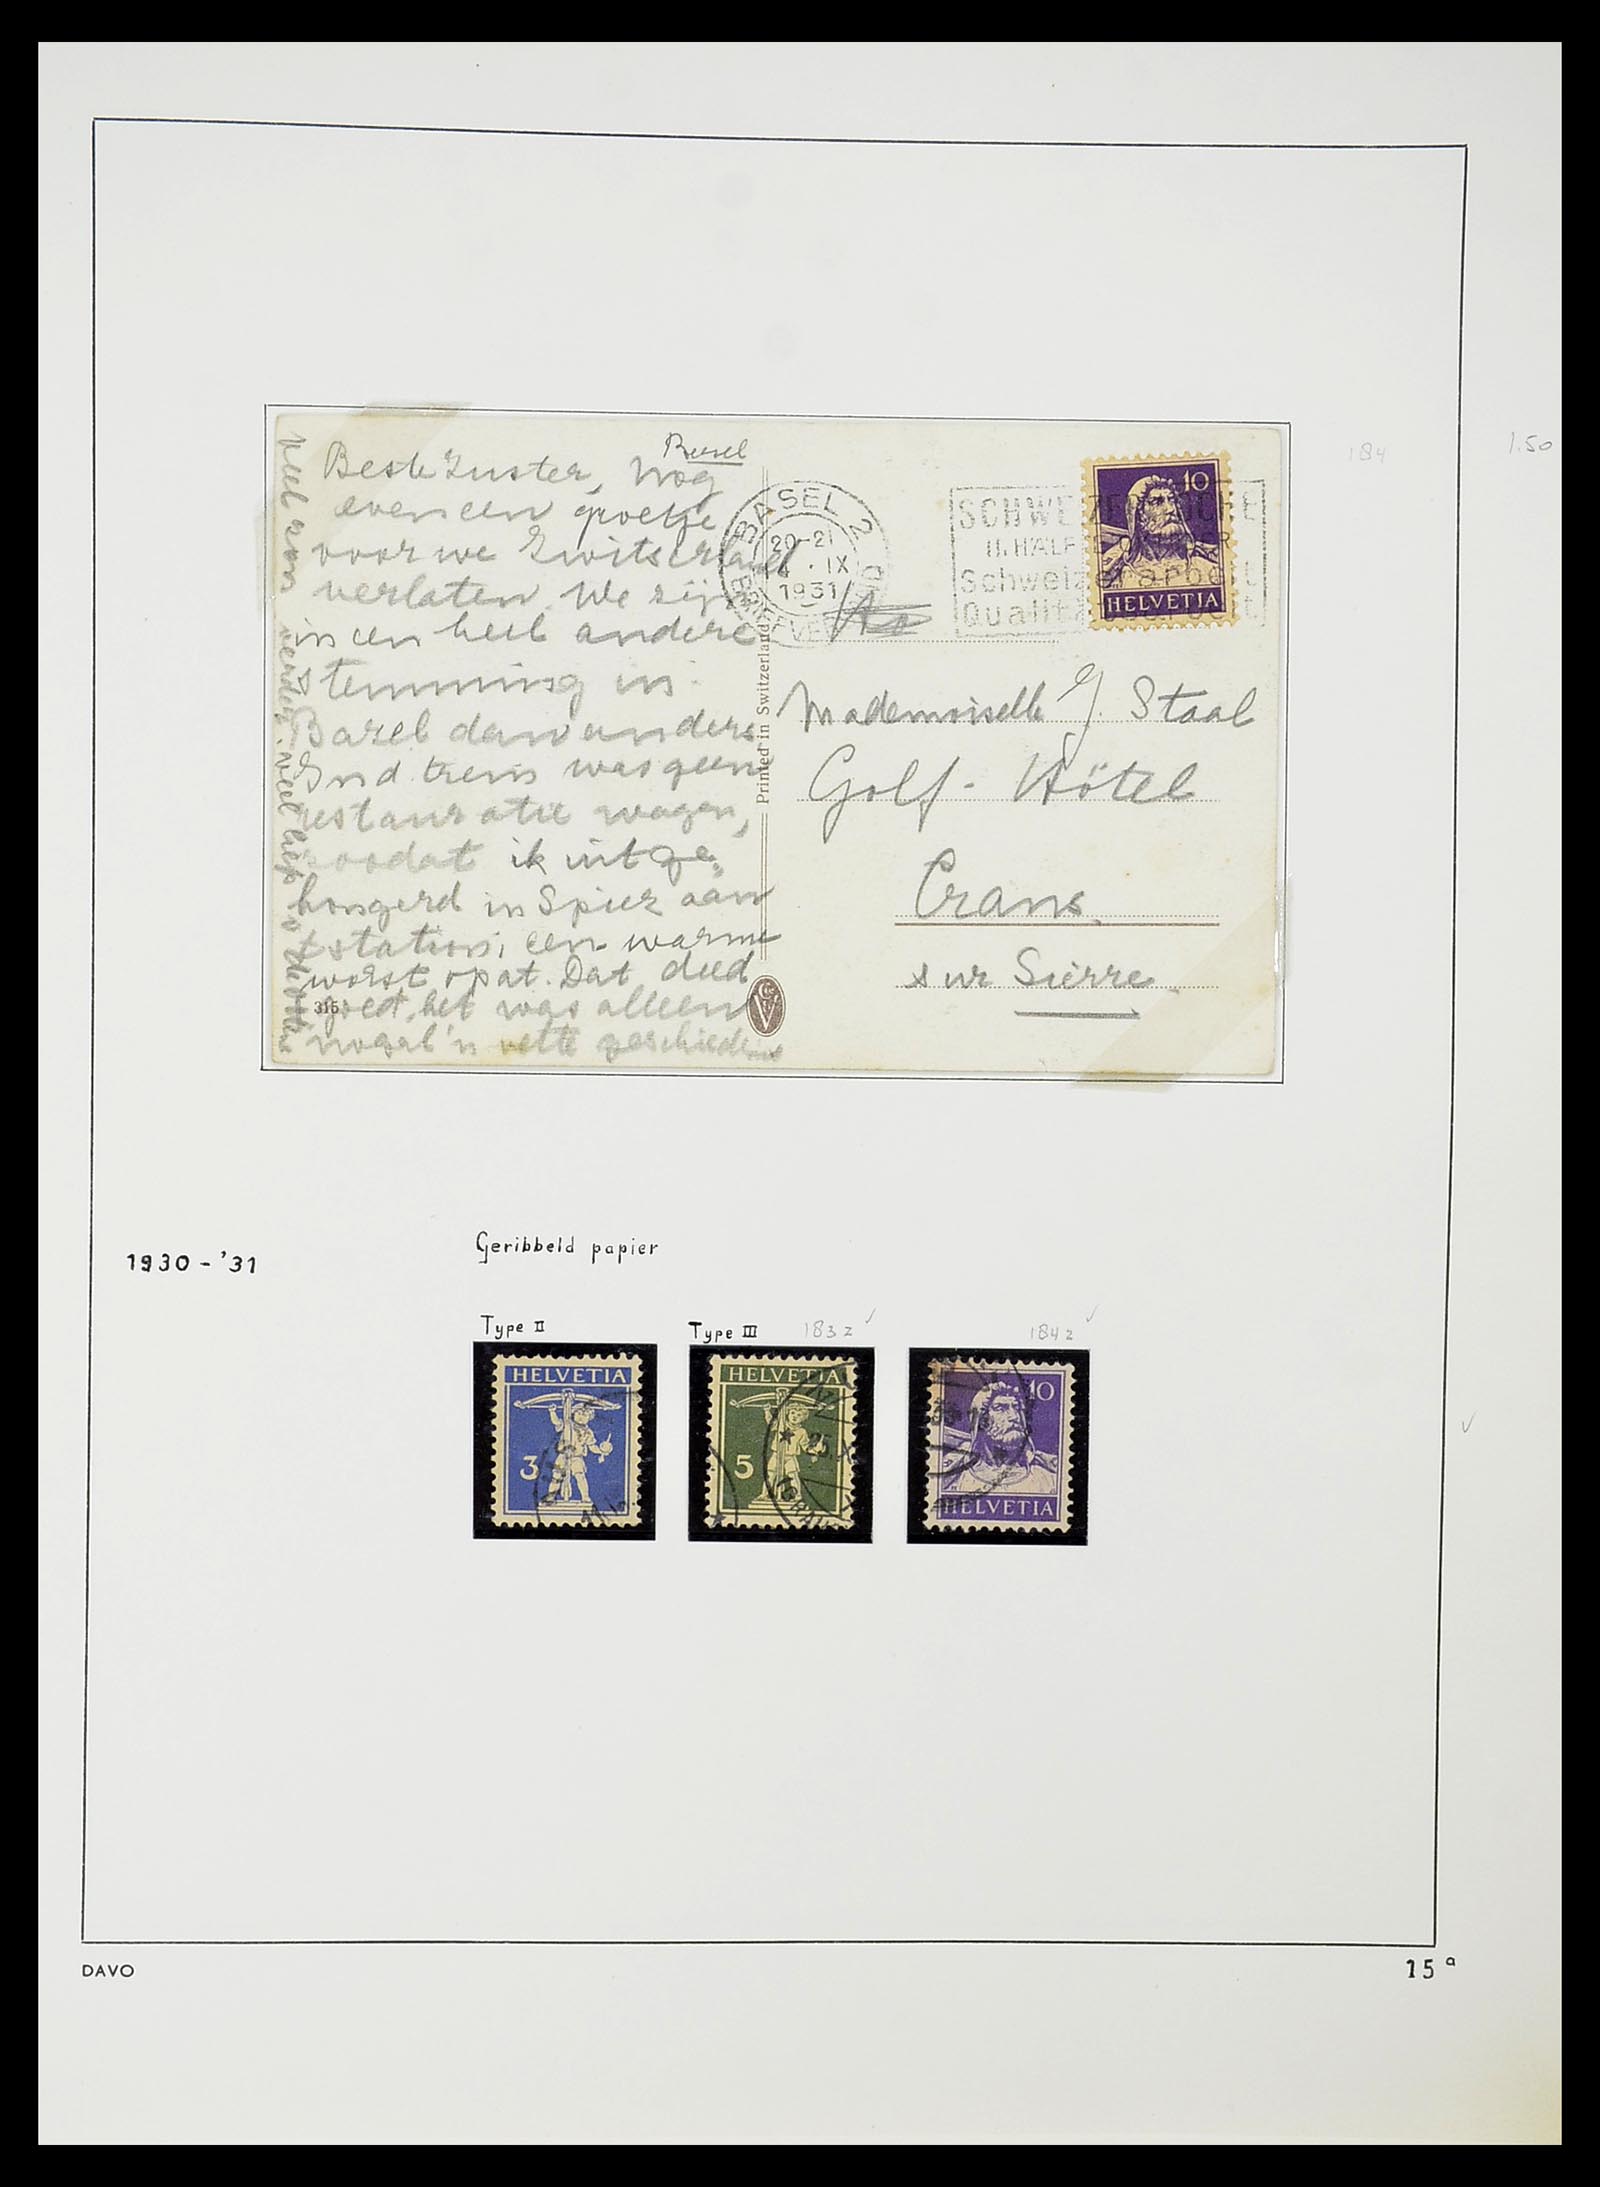 Basel
Beste Zuster, Nog
even een groetje
voor we Zwitserland
verlaten. We zijn
in een heel andere
stemming in
Bazel dan anders
In d. trein was geen
restauratie wagen,
zoodat ik uitge-
hongerd in Spiez aan
t station, een warme
worst opat. Dat deed
goed, het was alleen
nogal 'n vette geschiedenis
315
Printed in Switzerland
BASEL 2
20-21
IX
1931
SCHWEIZERWOCHE
II. HÄLFTE OKTOBER
Schweizerarbeit
Qualitätsarbeit
10
HELVETIA
Mademoiselle J. Staal
Golf - Hôtel
Crans
sur Sierre
184
1.50
1930 - '31
Geribbeld papier
Type II
Type III 183z
184z
HELVETIA
3
HELVETIA
5
10
HELVETIA
DAVO
15a